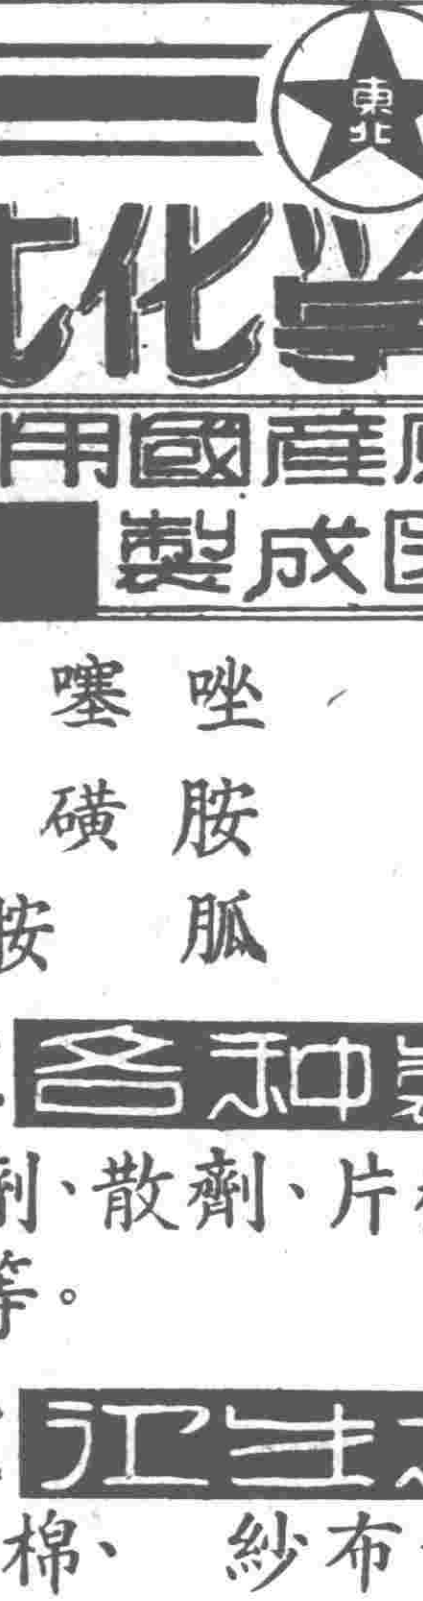 東
北
化学
用國産
製成
噻唑
磺胺
胺 胍
各种
劑、散劑、片
等。
卫生
棉、 紗布